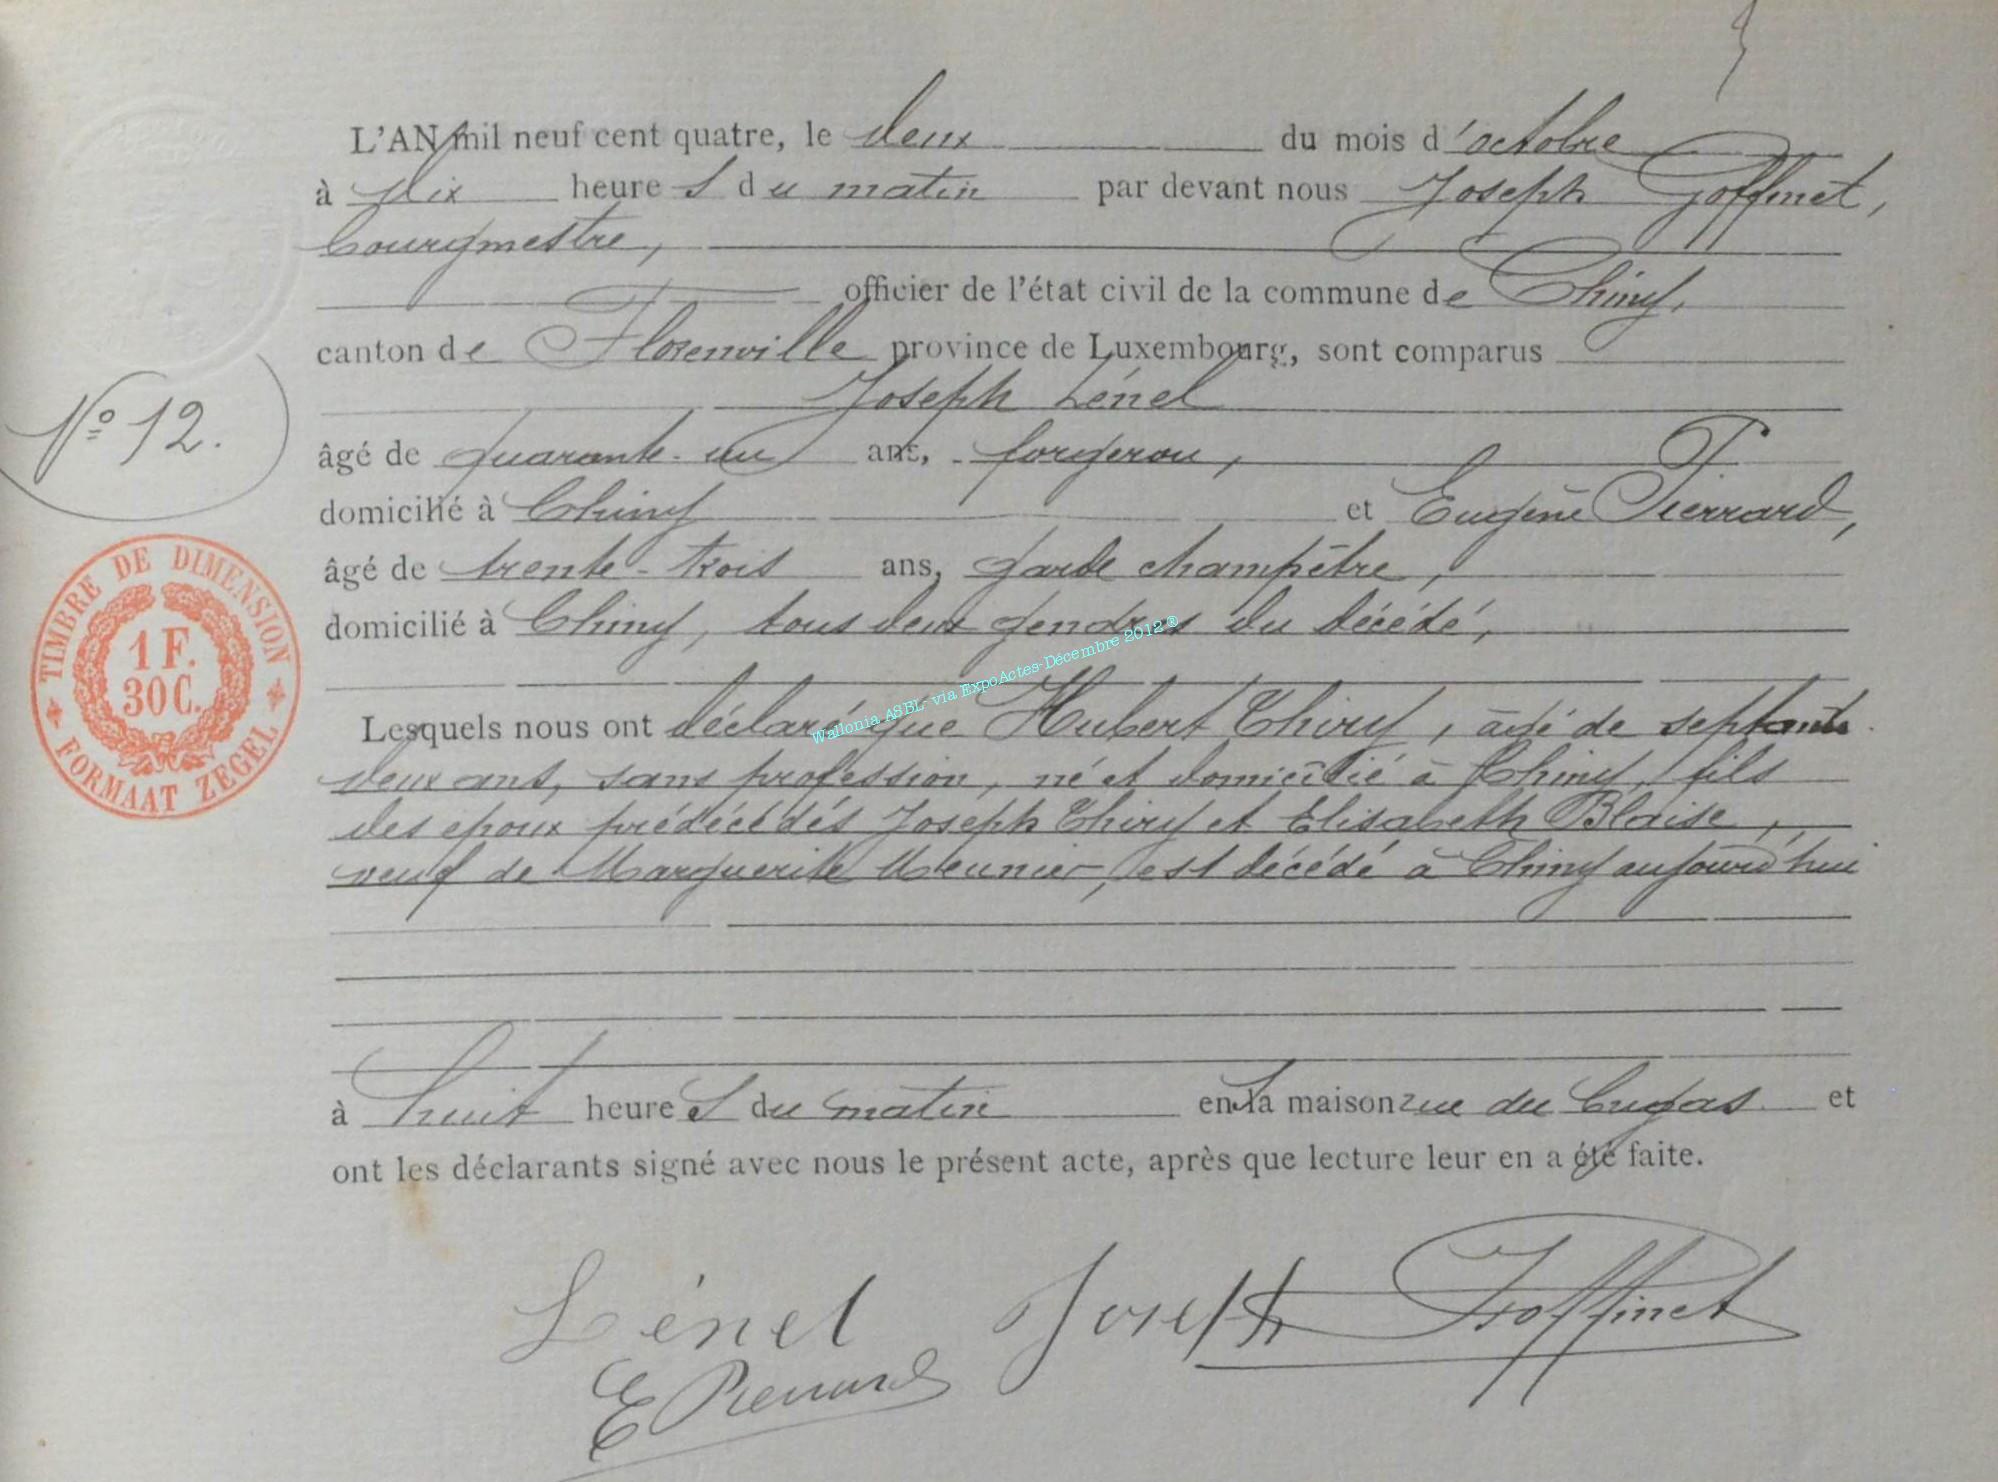 L'AN mil neuf cent quatre, le deux du mois d'octobre
à dix heures du matin par devant nous Joseph Goffinet,
bourgmestre,
officier de l'état civil de la commune de Chiny,
canton de Florenville province de Luxembourg, sont comparus
Joseph Lénel
N° 12.
âgé de quarante-un ans, forgeron,
domicilié à Chiny et Eugène Pierrard,
âgé de trente-trois ans, garde champêtre,
domicilié à Chiny, tous deux gendres du décédé,
TIMBRE DE DIMENSION
1 F.
30 C.
FORMAAT ZEGEL
Wallonia ASBL via ExpoActes-Décembre 2012®
Lesquels nous ont déclaré que Hubert Thiry, âgé de septante
deux ans, sans profession, né et domicilié à Chiny, fils
des époux prédécédés Joseph Thiry et Elisabeth Blaise,
veuf de Marguerite Meunier, est décédé à Chiny aujourd'hui
à huit heures du matin en sa maison rue du et
ont les déclarants signé avec nous le présent acte, après que lecture leur en a été faite.
Lénel Joseph Goffinet
E Pierrard